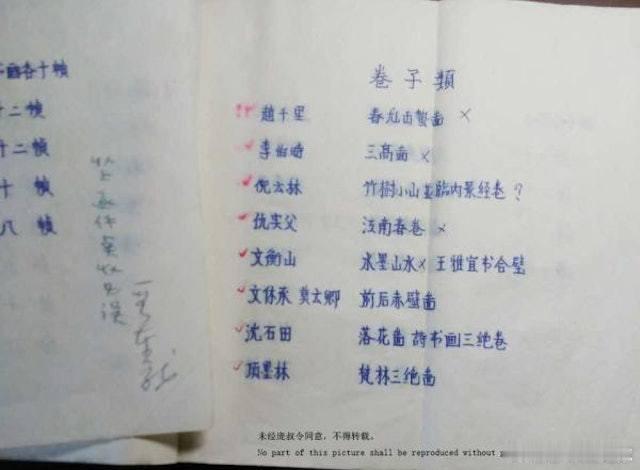 各十幀
十二幀
十二幀
十 幀
八 幀
收无误
卷子類
趙千里 春龙出蟄啚 ×
李伯時 三高啚 ×
倪云林 竹樹小山並臨内景经卷 ?
仇实父 江南春卷 ×
文衡山 水墨山水× 王雅宜书合璧
文休承 莫云卿 前后赤壁啚
沈石田 落花啚 詩书画三绝卷
項墨林 梵林三绝啚
未经庞叔令同意，不得转载。
No part of this picture shall be reproduced without